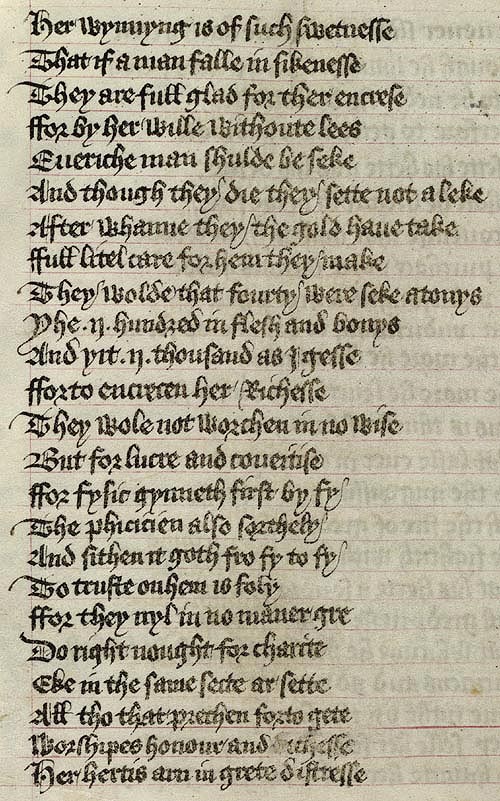 Her wynnyng is of such swetnesse
That if a man falle in sikenesse
They are full glad for ther encrese
ffor by her wille withoute lees
Eueriche man shulde be seke
And though they die they sette not a leke
After whanne they the gold haue take
ffull litel care for hem they make
They wolde that fourty were seke atonys
Yhe .ij. hundred in flesh and bonys
And yit .ij. thousand as I gesse
fforto encrecen her Richesse
They wole not worchen in no wise
But for lucre and coueitise
ffor fysic gynneth first by fy
The phicicien also sothely
And sithen it goth fro fy to fy
To truste on hem is foly
ffor they nyl in no maner gre
Do right nought for charite
Eke in the same secte ar sette
All tho that prechen forto gete
Worshipes honour and richesse
Her hertis arn in grete distresse